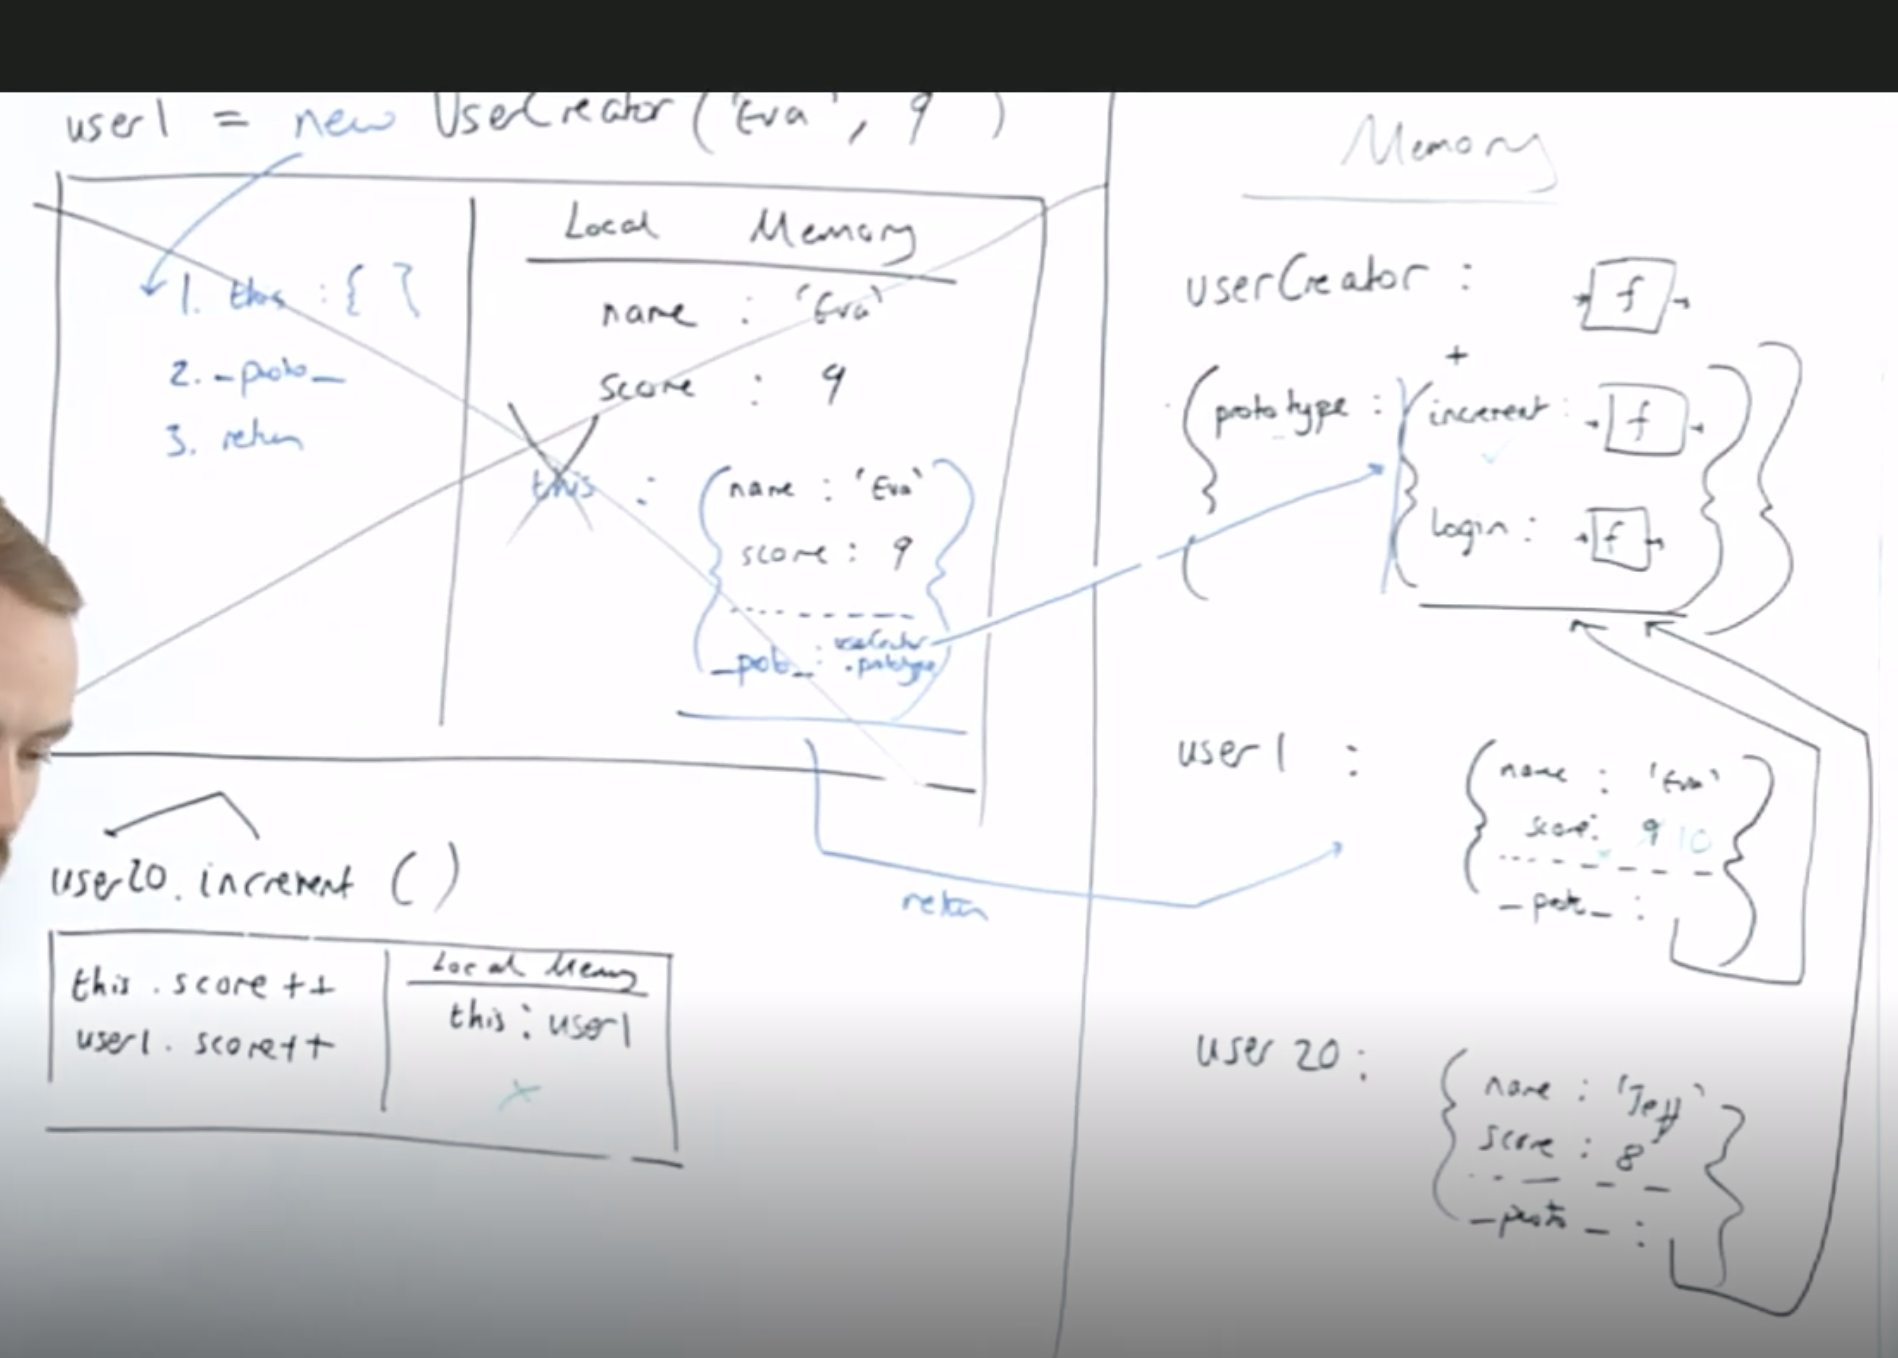 user1 = new UserCreator ('Eva', 9 )
1. this : { }
2. _proto_
3. return
Local Memory
name : 'Eva'
score : 9
this : { name : 'Eva'
score : 9
_proto_ : userCreator
.prototype }
return
user20.increment ()
this.score++
user1.score++
Local Memory
this : user1
Memory
userCreator : f
+
{ prototype : { increment : f
login : f } }
user1 : { name : 'Eva'
score : 9 10
_proto_ : }
user20 : { name : 'Jeff'
score : 8
_proto_ : }